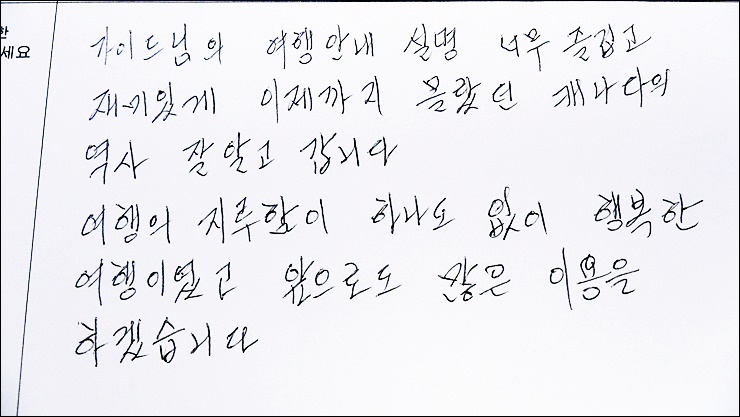 한
세요
가이드님의 여행안내 설명 너무 즐겁고
재미있게 이제까지 몰랐던 캐나다의
역사 잘 알고 갑니다
여행의 지루함이 하나도 없이 행복한
여행이였고 앞으로도 많은 이용을
하겠습니다